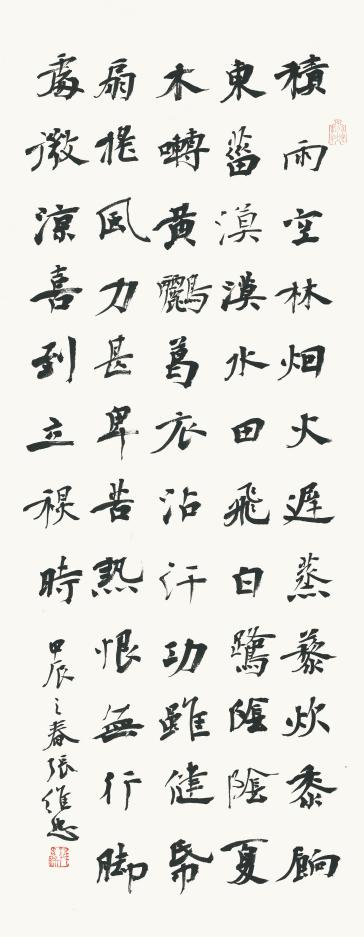 積雨空林烟火遲蒸藜炊黍餉
東菑漠漠水田飛白鷺陰陰夏
木囀黃鸝葛衣沾汗功雖健帋
扇搖風力甚卑苦熱恨無行脚
處微涼喜到立秋時
甲辰之春張維忠